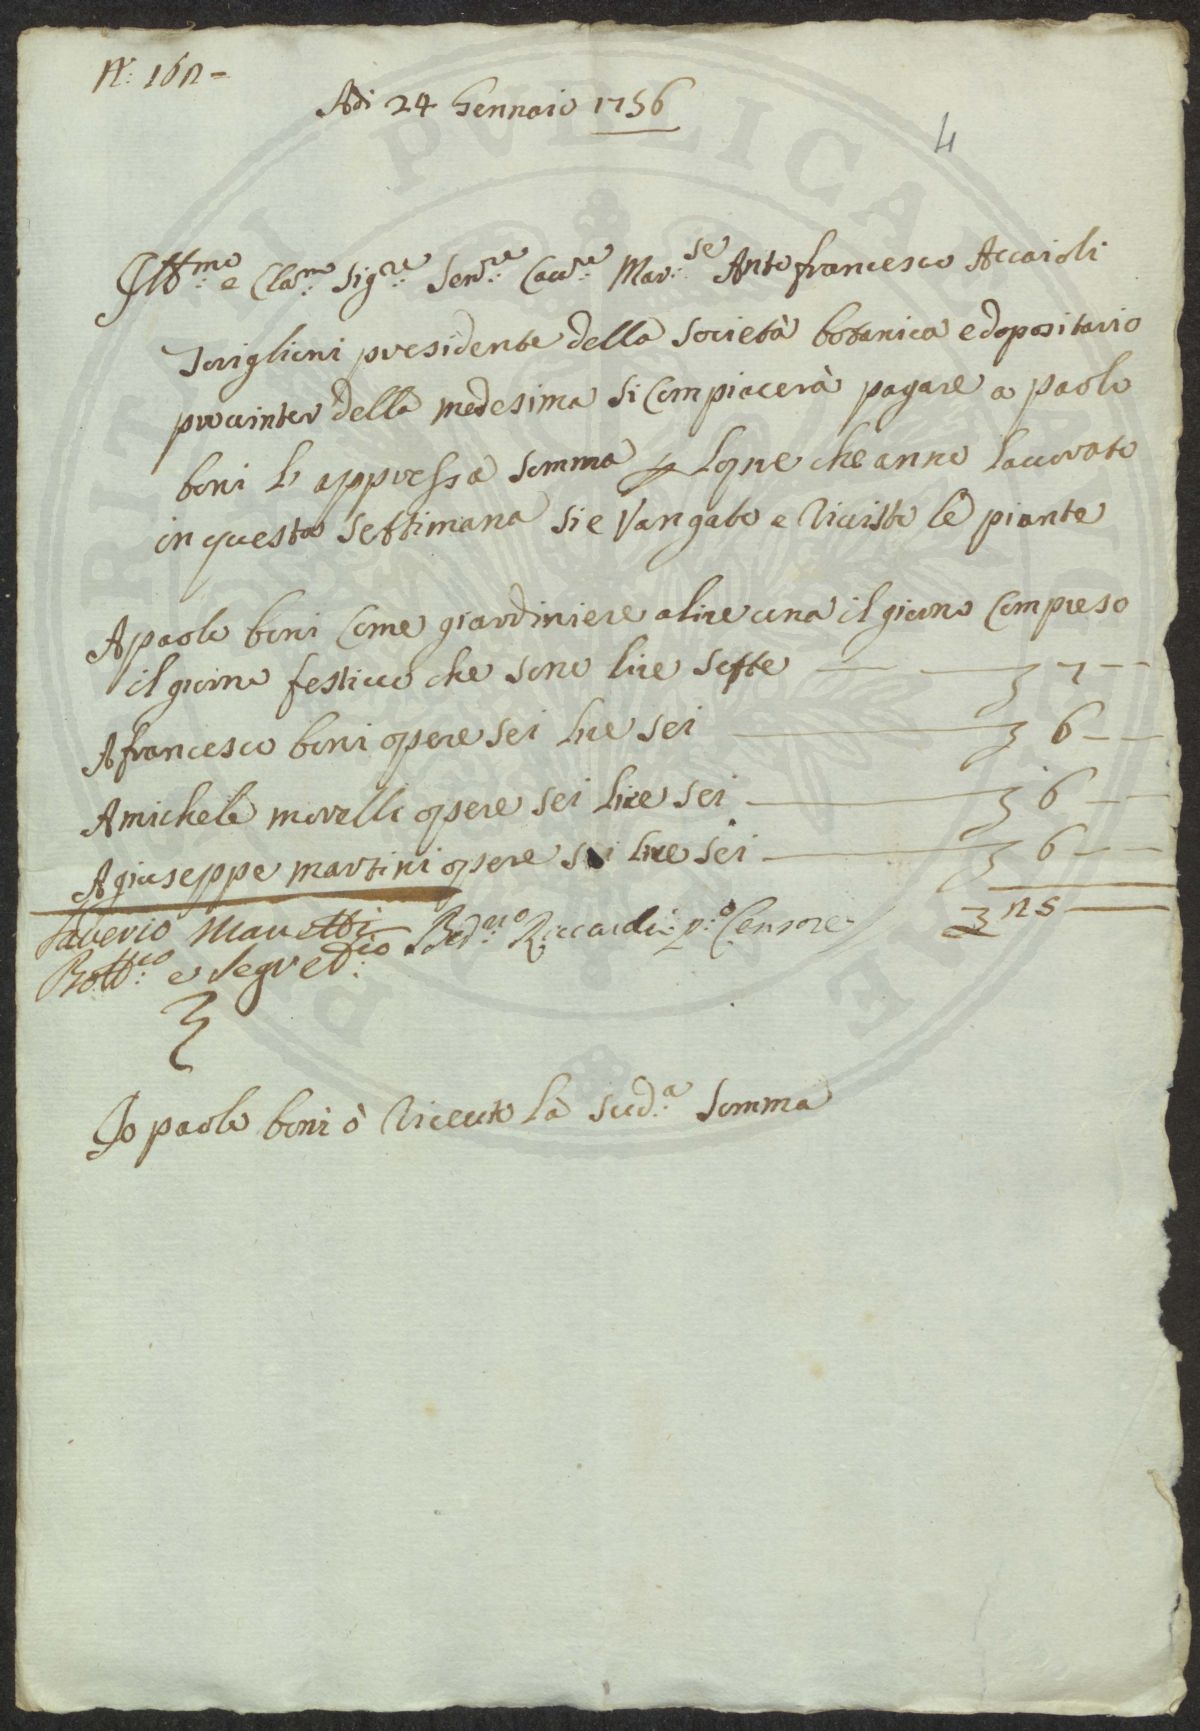 N: 162=
Adi 24 Gennaio 1756
4
Ill:mo e Cla:mo Sig:re Sen:re Cav:re Mar:se Anto francesco Accaioli
Toriglioni presidente della Società botanica e dopositario
provinter della medesima si Compiacerà pagare a paolo
boni l appressa somma p lopre che anno lavorato
in questa settimana si e Vangato e Rivisto le piante
A paolo boni Come giardiniere a lire una il giorno Compreso
il giorno festivo che sono lire sette 7
A francesco boni opere sei lire sei 6
A michele morelli opere sei lire sei 6
A giuseppe martini opere sei lire sei 6
25
Saverio Manetti Bed:no Riccardi p:o Censore
Bott:co e Segret:rio
Io paolo boni ò Riceuto la sud:a somma
PVBLICAE